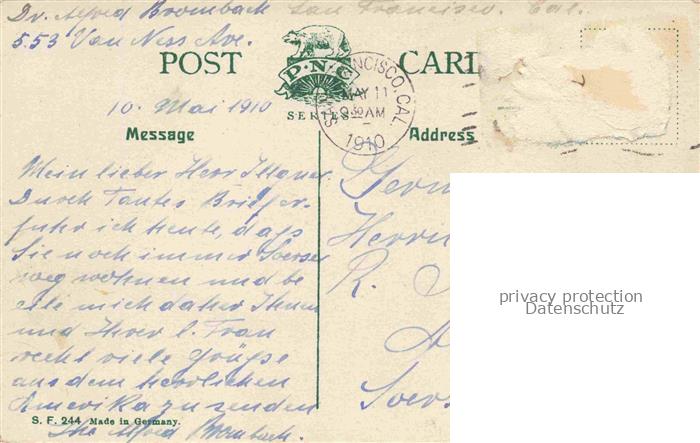 Dr. Alfred Brombach San Francisco. Cal.
553 Van Ness Ave.
POST CARD
P.N.C.
SERIES
SAN FRANCISCO, CAL.
MAY 11
9 30 AM
1910
10. Mai 1910
Message
Address
Mein lieber Herr Illgner.
Durch Tantes Brief er-
fuhr ich heute, daß
Sie noch immer Soerser
weg wohnen und be
eile mich daher Ihnen
und Ihrer l. Frau
recht viele Grüße
aus dem herrlichen
Amerika zu senden
Ihr Alfred Brombach.
Germ
Herrn
R.
Soers
privacy protection
Datenschutz
S. F. 244 Made in Germany.